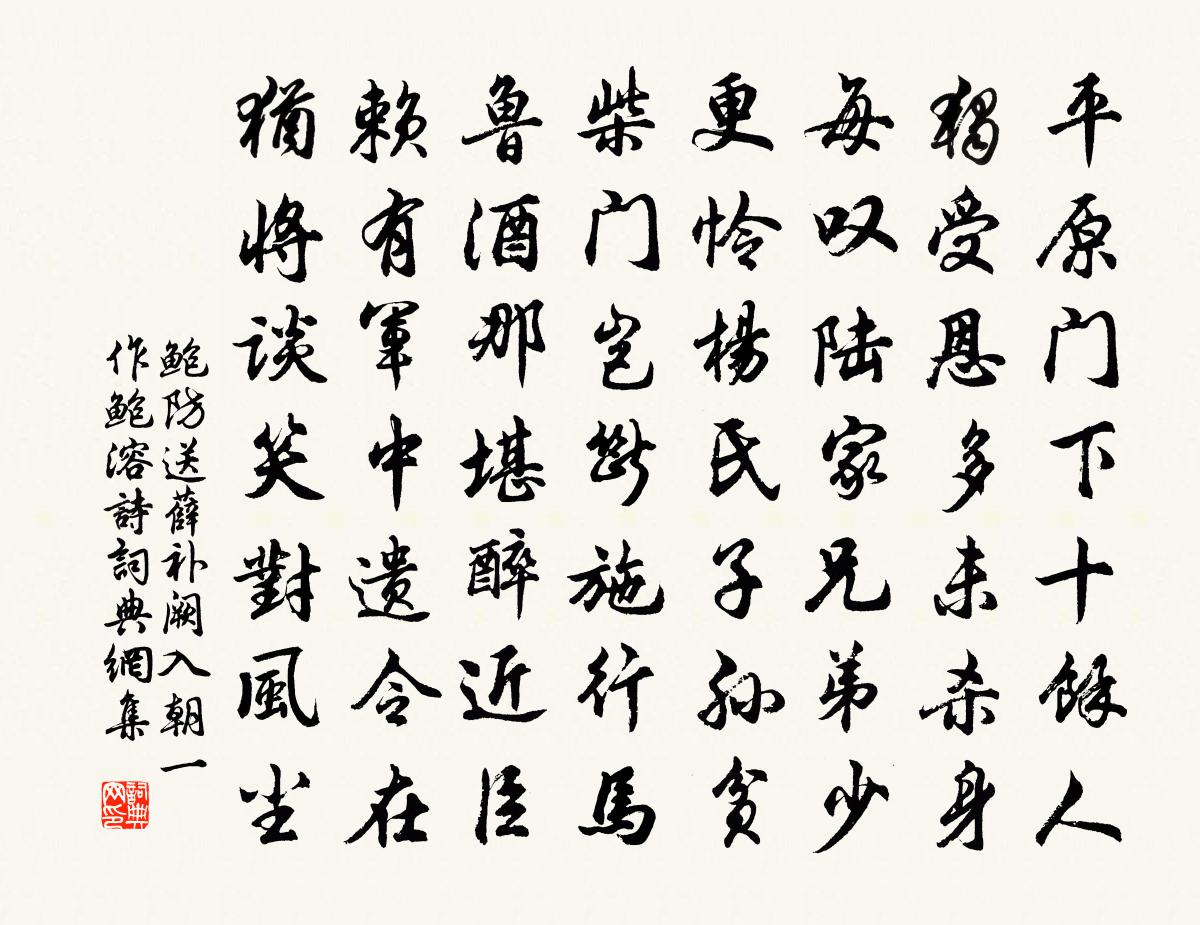 平原门下十餘人
獨受恩多未杀身
每叹陆家兄弟少
更怜楊氏子孙貧
柴门岂断施行馬
魯酒那堪醉近臣
赖有軍中遗令在
猶将谈笑對風尘
鲍防送薛补阙入朝一
作鲍溶詩詞典網集
詞典
网印